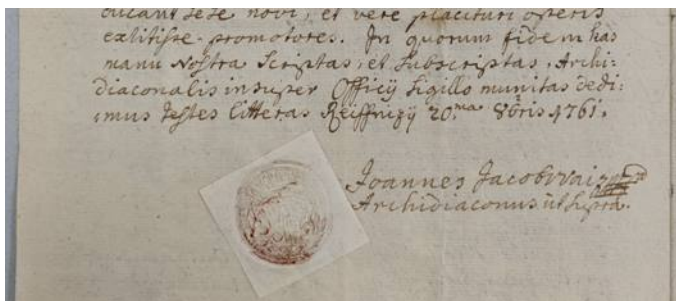 ducant sese novi, et vere placituri operis
extitisse promotores. In quorum fidem has
manu Nostra Scriptas, et Subscriptas, Archi:
diaconalis insuper Officij Sigillo munitas dedi:
mus Testes litteras Reiffnizij 20.ma 8bris 1761.
Joannes Jacob
Archidiaconus ut Supra.